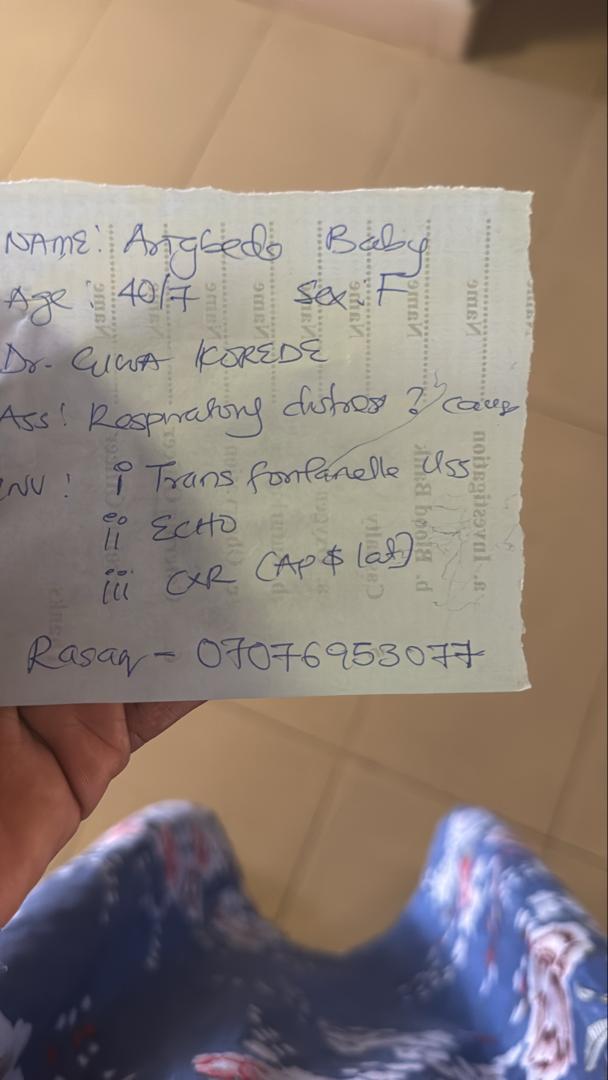 NAME: Arigbedo Baby
Age: 40/7 Sex: F
Dr. GIWA KOREDE
Ass: Respiratory distress ? cause
INV: i Trans fontanelle Uss
ii ECHO
iii CXR (AP & lat)
Rasaq - 07076953077
Name
Name
Name
Name
Name
Name
Name
a. Investigation
b. Blood Bank